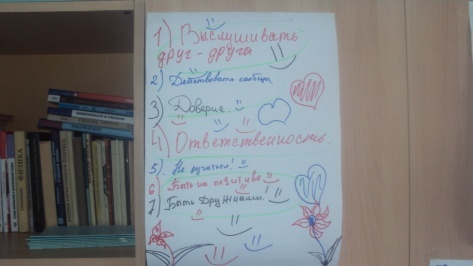 1) Выслушивать
друг - друга
2) Действовать сообща
3) Доверие.
4) Ответственность.
5). Не ругаться!
6) Быть на позитиве
7) Быть Дружными!
ФИЗИКА